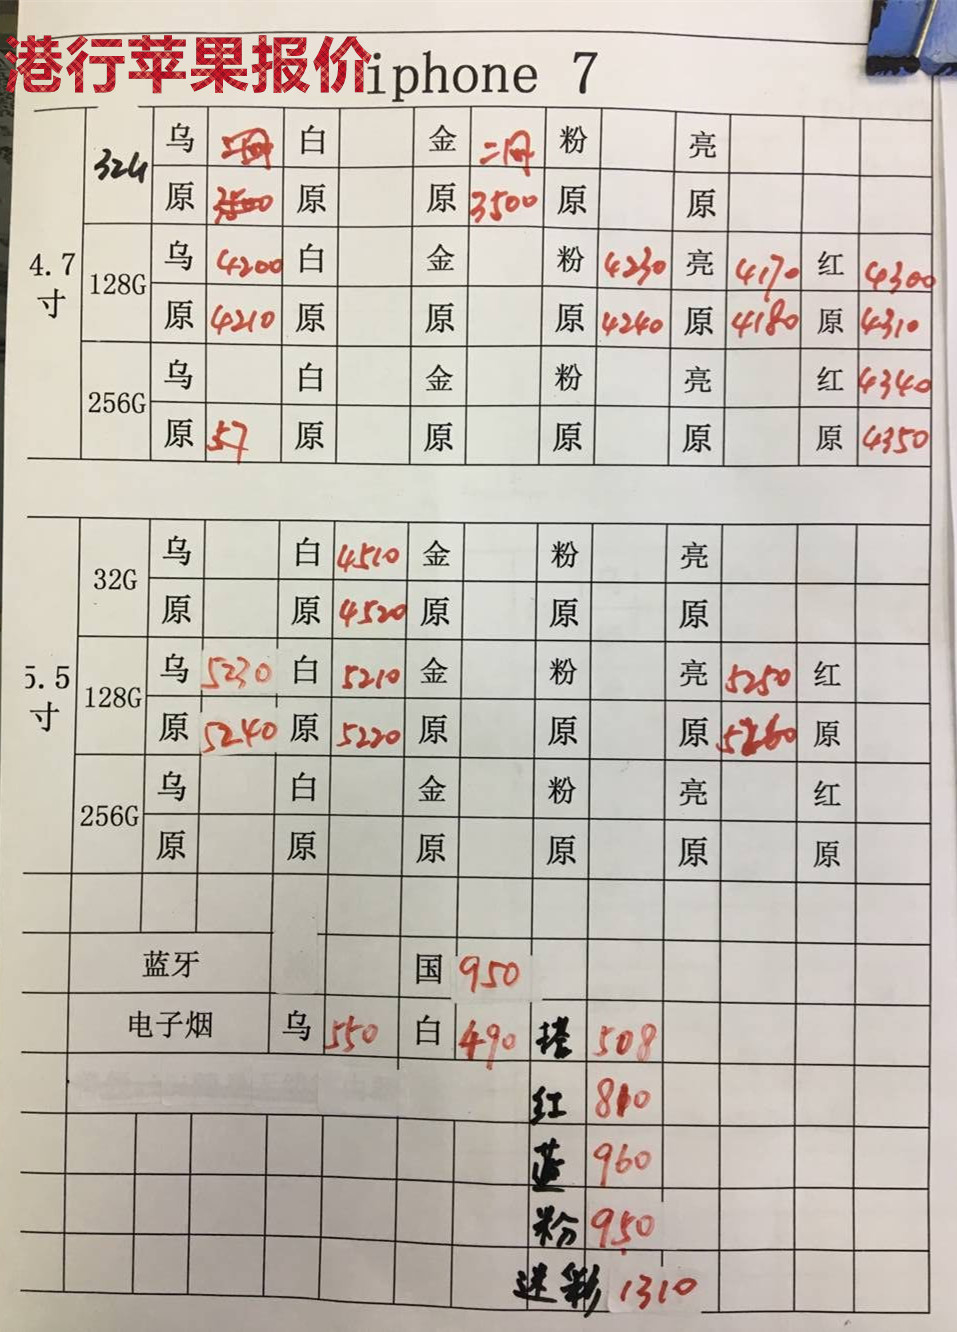 港行苹果报价
iphone 7
4.7寸
32G 乌 二网 白 金 二网 粉 亮
原 3500 原 原 3500 原 原
128G 乌 4200 白 金 粉 4230 亮 4170 红 4300
原 4210 原 原 原 4240 原 4180 原 4310
256G 乌 白 金 粉 亮 红 4340
原 57 原 原 原 原 原 4350
5.5寸
32G 乌 白 4510 金 粉 亮
原 原 4520 原 原 原
128G 乌 5230 白 5210 金 粉 亮 5250 红
原 5240 原 5220 原 原 原 5260 原
256G 乌 白 金 粉 亮 红
原 原 原 原 原 原
蓝牙 国 950
电子烟 乌 550 白 490 508
红 810
蓝 960
粉 950
迷彩 1310